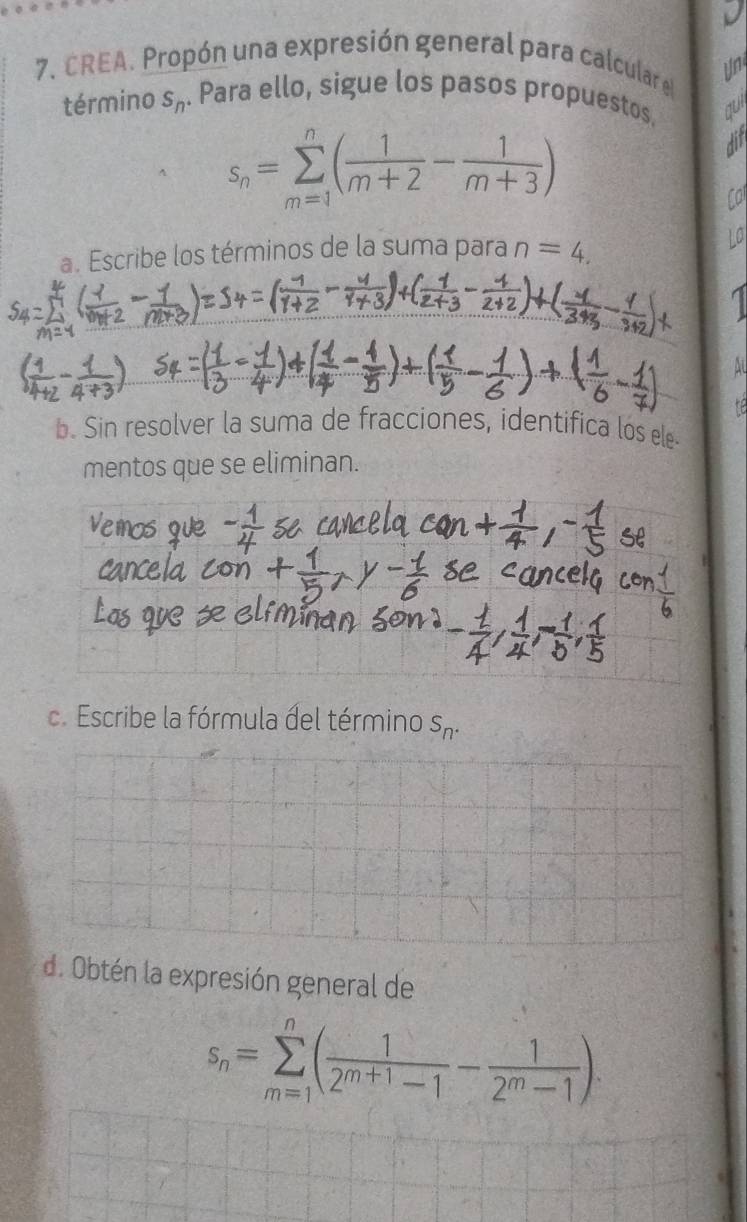 7. CREA. Propón una expresión general para calcular el
término sₙ. Para ello, sigue los pasos propuestos.
sₙ = ∑_{m=1}^{n} (1/(m+2) − 1/(m+3))
a. Escribe los términos de la suma para n = 4.
S4 = ∑_{m=1}^{4} (1/(m+2) - 1/(m+3)) = S4 = (1/(1+2) - 1/(1+3)) + (1/(2+3) - 1/(2+2)) + (1/(3+3) - 1/(3+2)) +
(1/(4+2) - 1/(4+3)) S4 = (1/3 - 1/4) + (1/4 - 1/5) + (1/5 - 1/6) + (1/6 - 1/7)
b. Sin resolver la suma de fracciones, identifica los ele-
mentos que se eliminan.
Vemos que -1/4 se cancela con +1/4, -1/5 se
cancela con +1/5, y -1/6 se cancela con 1/6
Los que se eliminan son: -1/4, 1/4, -1/5, 1/5
c. Escribe la fórmula del término sₙ.
d. Obtén la expresión general de
sₙ = ∑_{m=1}^{n} (1/(2^{m+1} − 1) − 1/(2^m − 1)).
Un
qui
dif
Co
La
té